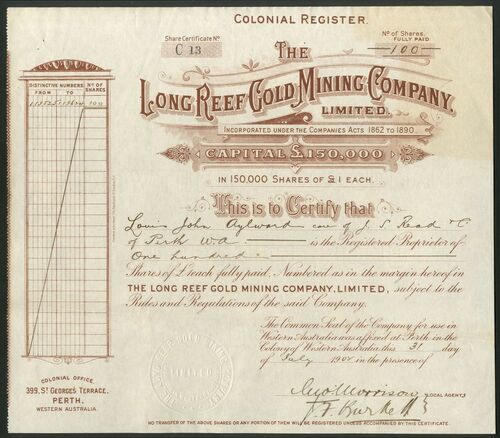 COLONIAL REGISTER.
Share Certificate No
C 13
No of Shares.
FULLY PAID
100
THE
LONG REEF GOLD MINING COMPANY,
LIMITED.
INCORPORATED UNDER THE COMPANIES ACTS 1862 TO 1890.
CAPITAL £150,000
IN 150,000 SHARES OF £1 EACH.
DISTINCTIVE NUMBERS. No OF SHARES
FROM TO
100
This is to Certify that
Louis John Aylward care of J. S. Read & Co
of Perth WA is the Registered Proprietor of
One hundred
Shares of £1 each fully paid, Numbered as in the margin hereof in
THE LONG REEF GOLD MINING COMPANY, LIMITED, subject to the
Rules and Regulations of the said Company.
The Common Seal of the Company for use in
Western Australia was affixed at Perth in the
Colony of Western Australia this 31 day
of July 190 in the presence of
Morrison
LOCAL AGENTS.
J. F. Burke
COLONIAL OFFICE.
399, ST GEORGES TERRACE.
PERTH,
WESTERN AUSTRALIA.
NO TRANSFER OF THE ABOVE SHARES OR ANY PORTION OF THEM WILL BE REGISTERED UNLESS ACCOMPANIED BY THIS CERTIFICATE.